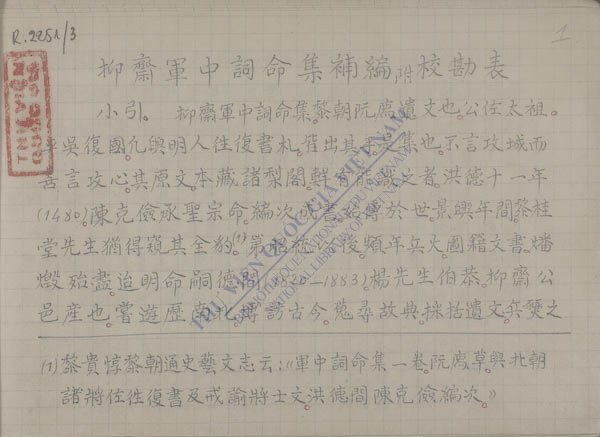 R.2251/3
1
THƯ VIỆN
QUỐC GIA
抑齋軍中詞命集補編附校勘表
小引。抑齋軍中詞命集黎朝阮廌遺文也。公佐太祖。
平吳復國凡與明人往復書札。皆出其手是集也。不言攻城而
善言攻心其原文。本藏諸梨閣。鮮有能識之者。洪德十一年
(1480)。陳克儉承聖宗命。編次
書
傳於世景興年間。黎桂
堂先生猶得窺其全豹。(1)第
後。頻年兵火。國籍文書。燔
燬殆盡。迨明命嗣德間(1820-1883)楊先生伯恭。抑齋公
邑產也。嘗遊歷南北。博訪古今。蒐尋故典。採括遺文。兵燹之
(1)黎貴惇黎朝通史藝文志云：《軍中詞命集一卷。阮廌草。與北朝
諸將佐往復書及戒諭將士文。洪德間陳克儉編次。》
THƯ VIỆN QUỐC GIA VIỆT NAM
NATIONAL LIBRARY OF VIETNAM